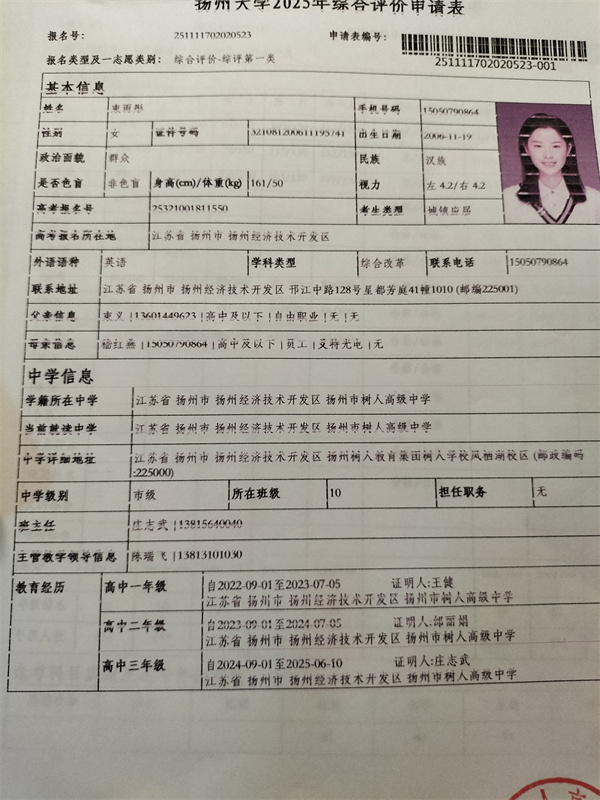 扬州大学2025年综合评价申请表
报名号: 251111702020523 申请表编号:
251111702020523-001
报名类型及一志愿类别: 综合评价-综评第一类
基本信息
姓名 束雨彤 手机号码 15050790864
性别 女 证件号码 321081200611195741 出生日期 2006-11-19
政治面貌 群众 民族 汉族
是否色盲 非色盲 身高(cm)/体重(kg) 161/50 视力 左 4.2/右 4.2
高考报名号 25321001811550 考生类型 城镇应届
高考报名所在地 江苏省 扬州市 扬州经济技术开发区
外语语种 英语 学科类型 综合改革 联系电话 15050790864
联系地址 江苏省 扬州市 扬州经济技术开发区 邗江中路128号星都芳庭41幢1010 (邮编225001)
父亲信息 束义 |13601449623|高中及以下|自由职业|无|无
母亲信息 红燕|15050790864|高中及以下|员工|艾特光电|无
中学信息
学籍所在中学 江苏省 扬州市 扬州经济技术开发区 扬州市树人高级中学
当前就读中学 江苏省 扬州市 扬州经济技术开发区 扬州市树人高级中学
中学详细地址 江苏省 扬州市 扬州经济技术开发区 扬州树人教育集团树人学校凤栖湖校区 (邮政编码
:225000)
中学级别 市级 所在班级 10 担任职务 无
班主任 庄志武|13815640040
主管教学领导信息 陈瑞飞|13813101030
教育经历 高中一年级 自2022-09-01至2023-07-05 证明人:王健
江苏省 扬州市 扬州经济技术开发区 扬州市树人高级中学
高中二年级 自2023-09-01至2024-07-05 证明人:邰丽娟
江苏省 扬州市 扬州经济技术开发区 扬州市树人高级中学
高中三年级 自2024-09-01至2025-06-10 证明人:庄志武
江苏省 扬州市 扬州经济技术开发区 扬州市树人高级中学